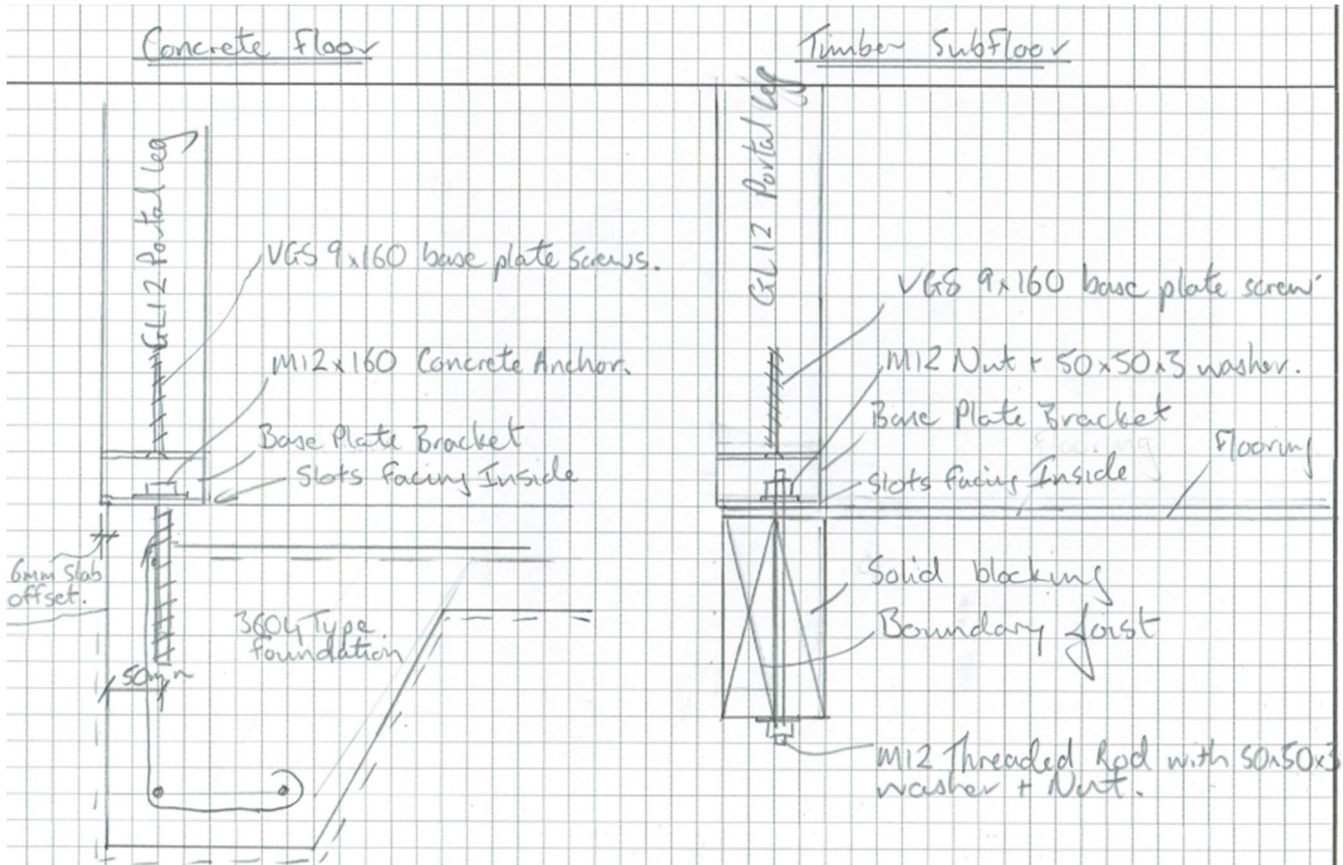 Concrete Floor
GL12 Portal Leg
VGS 9x160 base plate screws.
M12x160 Concrete Anchor.
Base Plate Bracket
Slots facing Inside
6mm slab
offset.
3604 Type
foundation
50min
Timber Subfloor
GL12 Portal Leg
VGS 9x160 base plate screw
M12 Nut + 50x50x3 washer.
Base Plate Bracket
Flooring
Slots facing Inside
Solid blocking
Boundary joist
M12 Threaded Rod with 50x50x3
washer + Nut.